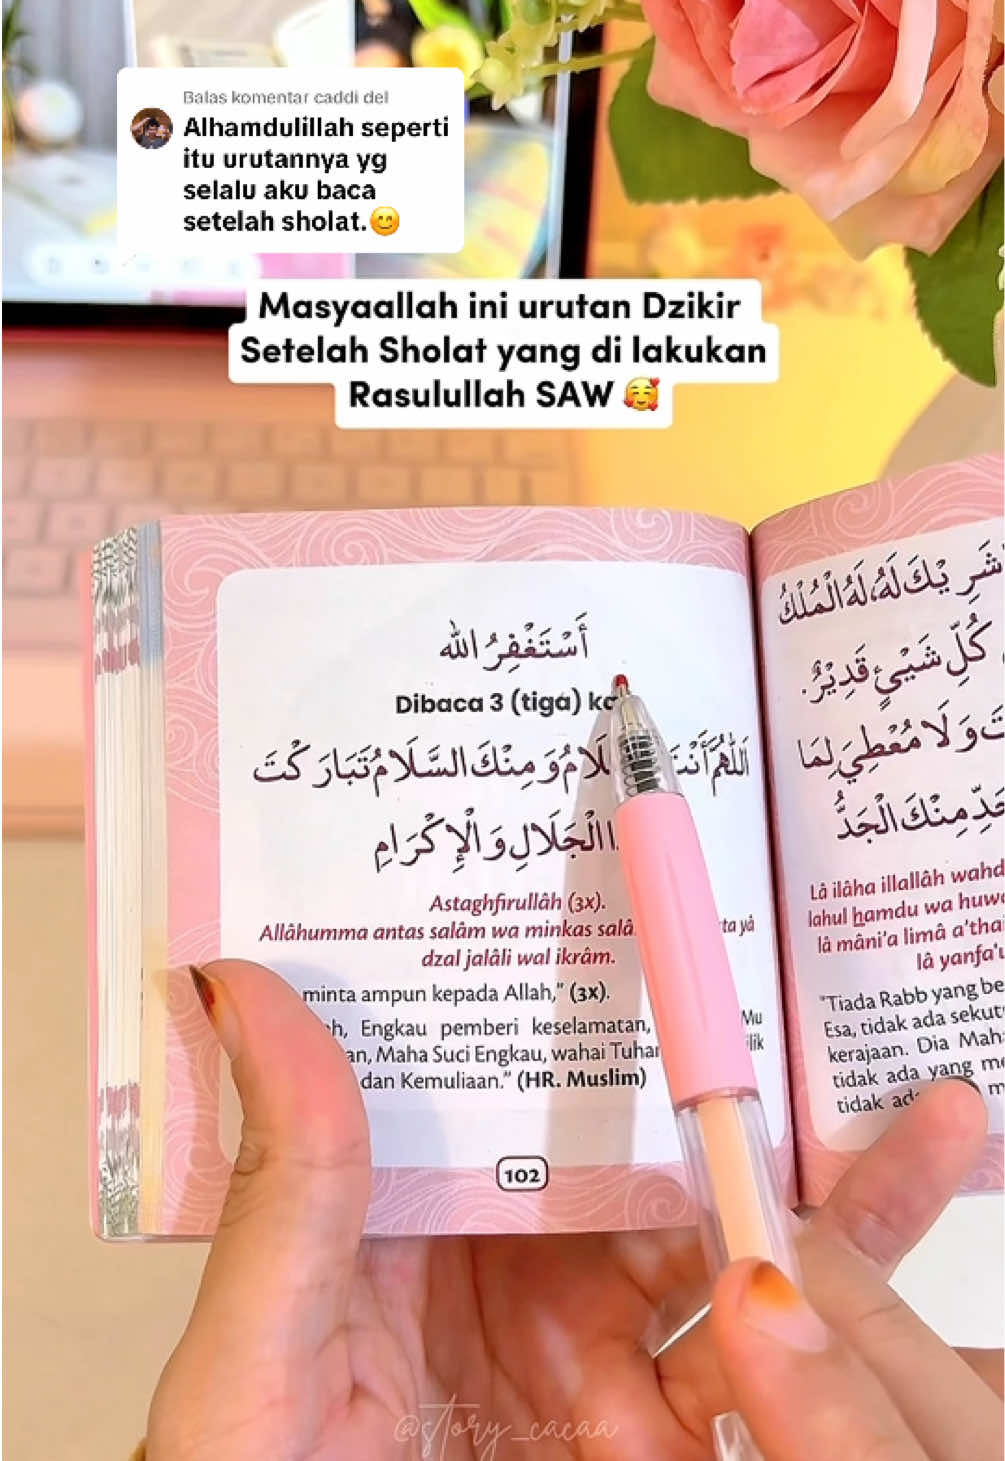 Balas komentar caddi del
Alhamdulillah seperti
itu urutannya yg
selalu aku baca
setelah sholat.😊
Masyaallah ini urutan Dzikir
Setelah Sholat yang di lakukan
Rasulullah SAW 🥰
أَسْتَغْفِرُ الله
Dibaca 3 (tiga)
اَللّٰهُمَّ أَنْتَ وَمِنْكَ السَّلَامُ تَبَارَكْتَ
الْجَلَالِ وَالْإِكْرَامِ
Astaghfirullâh (3x).
Allâhumma antas salâm wa minkas yâ
dzal jalâli wal ikrâm.
minta ampun kepada Allah,” (3x).
Engkau pemberi keselamatan,
Maha Suci Engkau, wahai
dan Kemuliaan.” (HR. Muslim)
102
شَرِيْكَ لَهُ، لَهُ الْمُلْكُ
كُلِّ شَيْئٍ قَدِيْرٌ.
وَلَا مُعْطِيَ لِمَا
مِنْكَ الْجَدُّ
Lâ ilâha illallâh
lahul hamdu wa
lâ mâni'a limâ
lâ
"Tiada Rabb yang
Esa, tidak ada
kerajaan. Dia
tidak ada yang
tidak
@story_cacaa